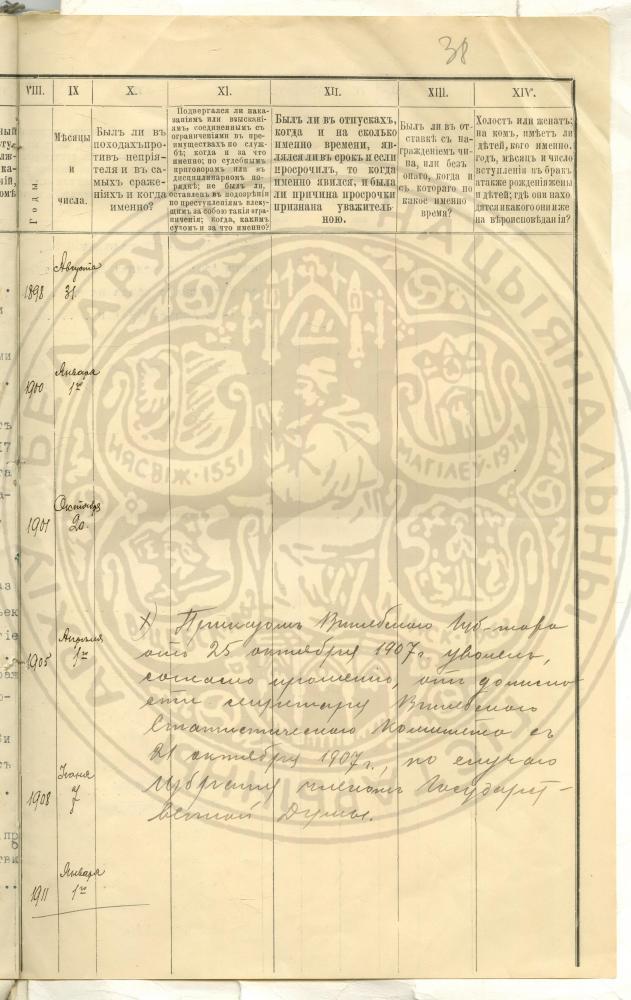 38
VIII. IX X. XI. XII. XIII. XIV.
Годы.
Мѣсяцы
и
числа.
Былъ ли въ
походахъ про-
тивъ непрія-
теля и въ са-
мыхъ сраже-
ніяхъ и когда
именно?
Подвергался ли нака-
заніямъ или взыскані-
ямъ, соединеннымъ съ
ограниченіями въ пре-
имуществахъ по служ-
бѣ; когда и за что
именно; по судебнымъ
приговорамъ или въ
дисциплинарномъ по-
рядкѣ; не былъ ли,
оставленъ въ подозрѣніи
по преступленіямъ влеку-
щимъ за собою такія огра-
ниченія; когда, какимъ
судомъ и за что именно?
Былъ ли въ отпускахъ,
когда и на сколько
именно времени, яв-
лялся ли въ срокъ и если
просрочилъ, то когда
именно явился, и была
ли причина просрочки
признана уважитель-
ною.
Былъ ли въ от-
ставкѣ съ на-
гражденіемъ чи-
на, или безъ
онаго, когда и
съ котораго по
какое именно
время?
Холостъ или женатъ;
на комъ, имѣетъ ли
дѣтей, кого именно.
годъ, мѣсяцъ и число
вступленія въ бракъ
а также рожденія жены
и дѣтей; гдѣ они нахо-
дятся и какого они и же-
на вѣроисповѣданія?
Августа
1898 31.
Января
1900 1го
Октября
1901 20.
Апрѣля
1905 1го
х) Приказомъ Витебскаго Губ-тора
отъ 25 октября 1907 г. уволенъ,
согласно прошенію, отъ должно-
сти секретаря Витебскаго
Статистическаго Комитета съ
21 октября 1907 г., по случаю
избранія членомъ Государст-
венной Думы.
1908 7
Января
1911 1го
НЯСВІЖ · 1551
МАГІЛЕЎ · 19